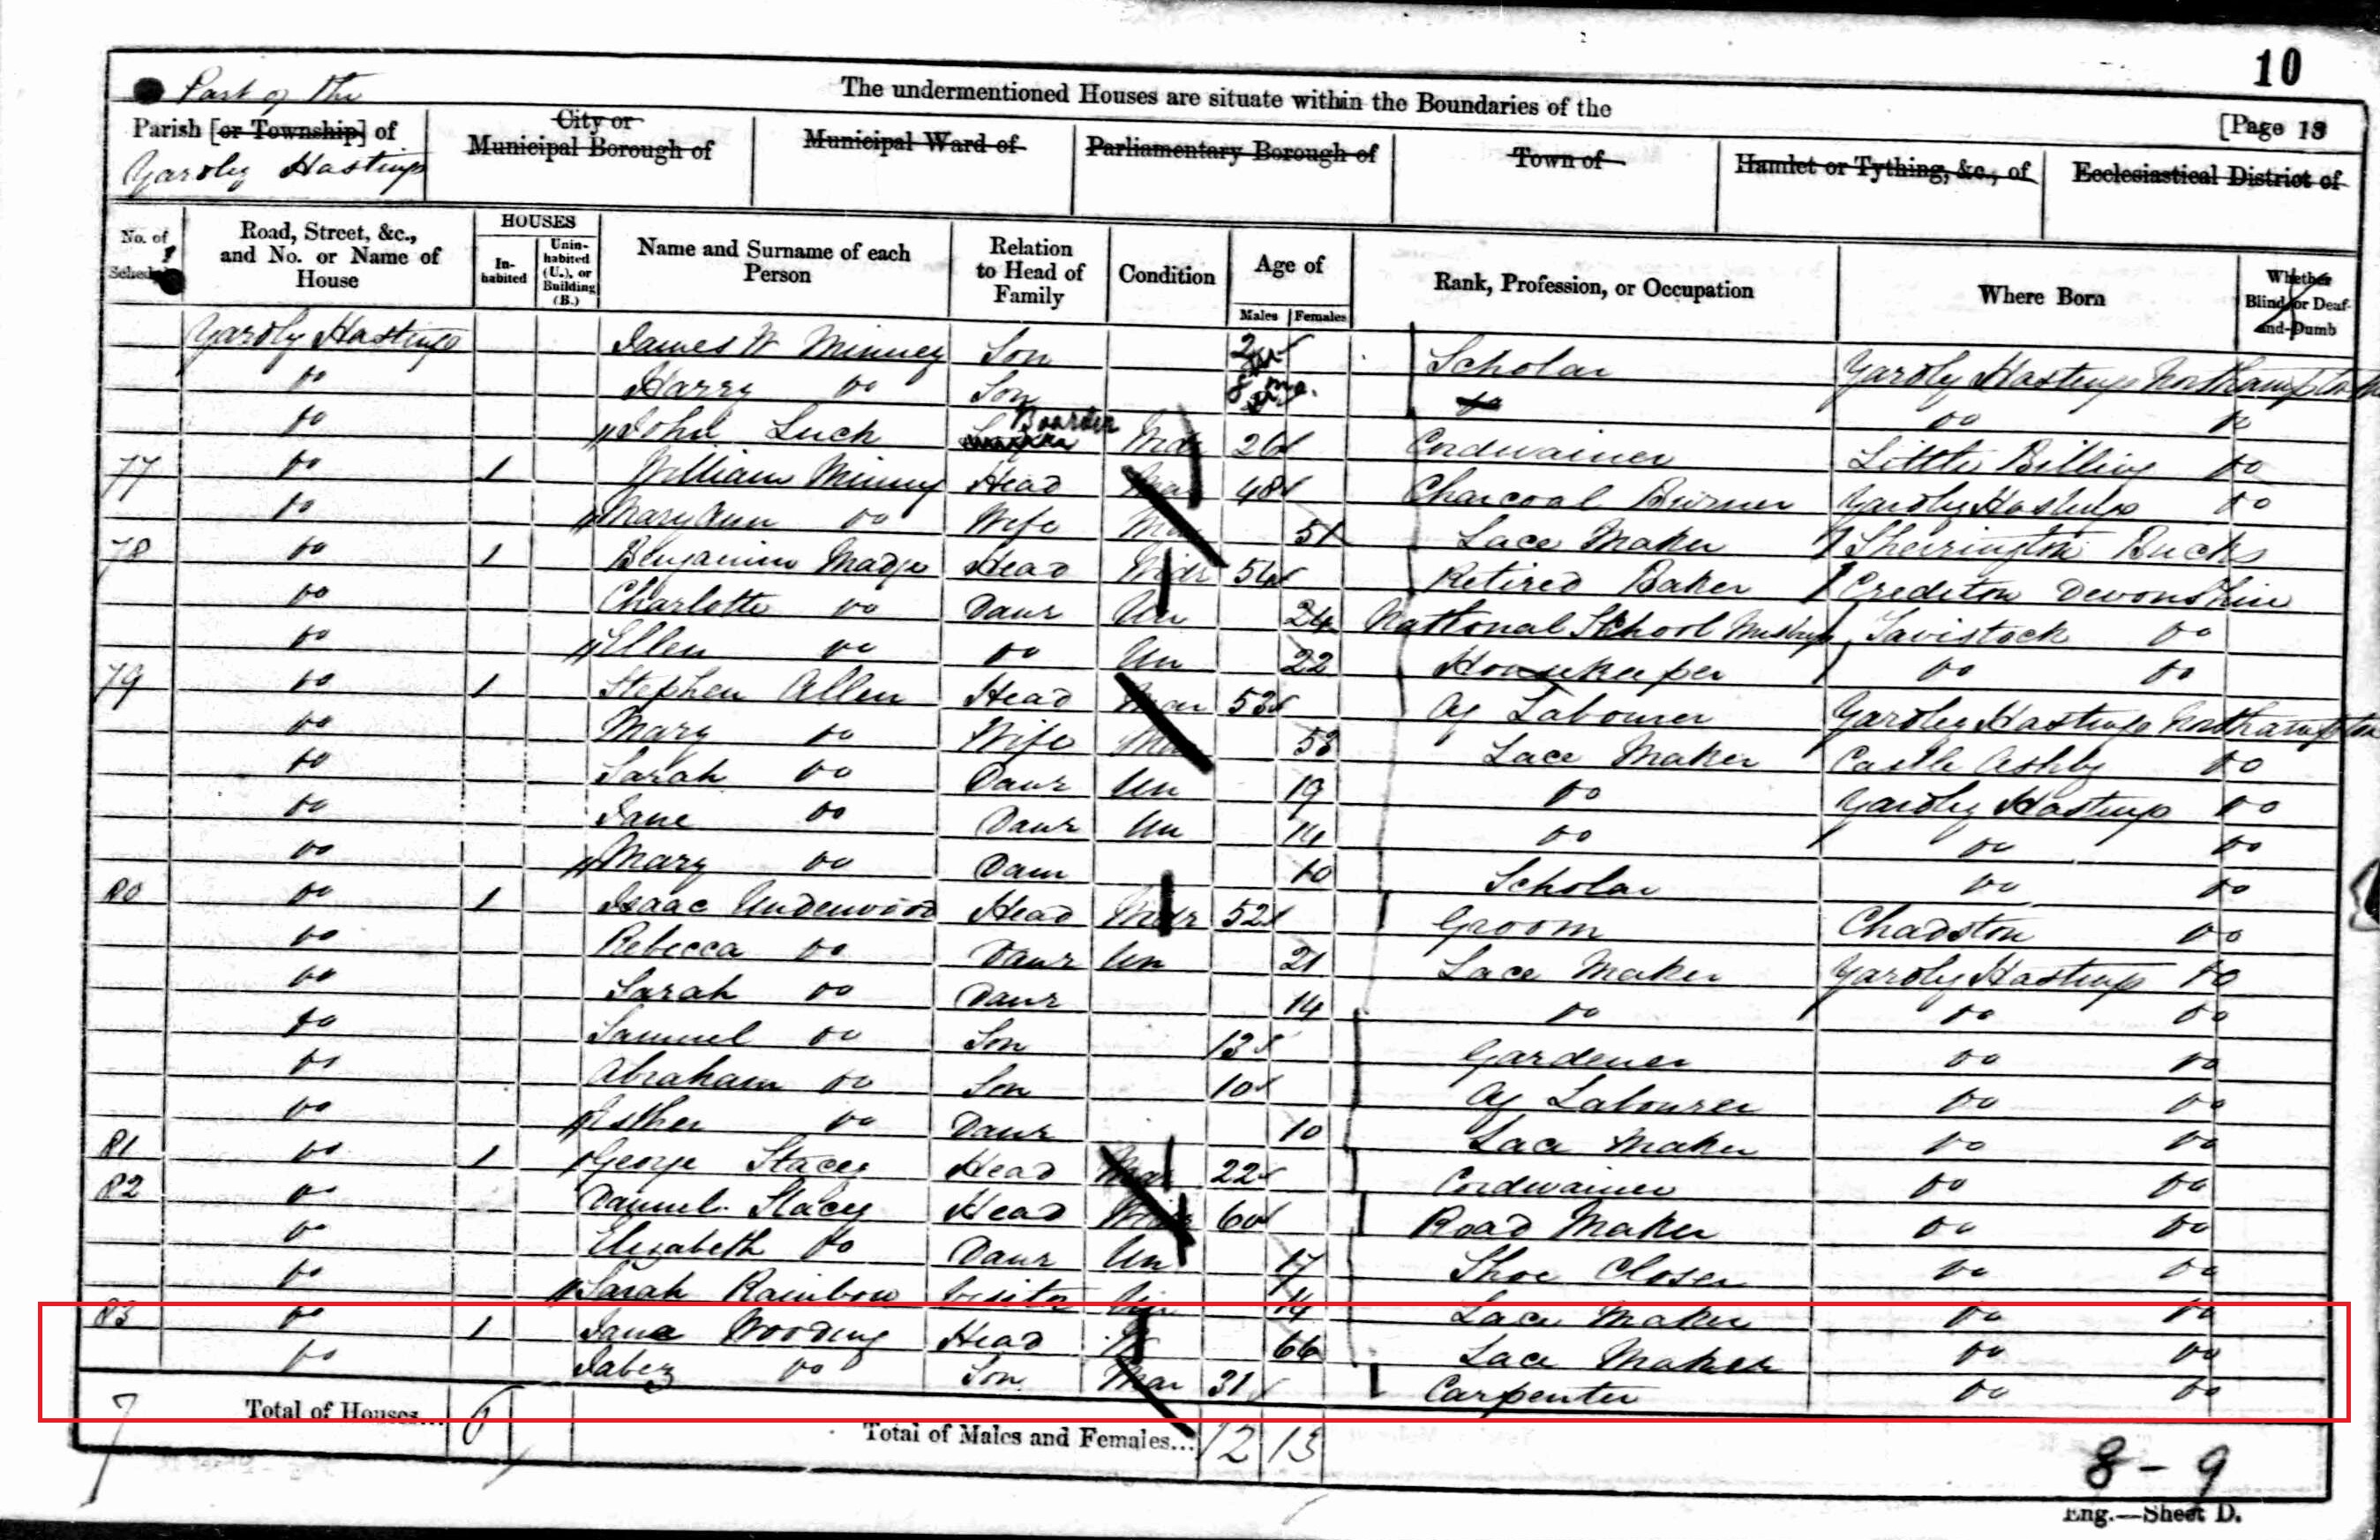 10
The undermentioned Houses are situate within the Boundaries of the
[Page 13
Part of the
Parish [or Township] of
Yardly Hastings
City or Municipal Borough of
Municipal Ward of
Parliamentary Borough of
Town of
Hamlet or Tything, &c., of
Ecclesiastical District of
No. of Schedule
Road, Street, &c., and No. or Name of House
HOUSES
In-habited
Unin-habited (U.), or Building (B.)
Name and Surname of each Person
Relation to Head of Family
Condition
Age of
Males Females
Rank, Profession, or Occupation
Where Born
Whether Blind or Deaf-and-Dumb
Yardly Hastings James W Minney Son 2 Scholar Yardly Hastings Northampton
do Harry do Son 8 mo. do do do
do John Luck Boarder 26 Cordwainer Little Billing do
77 do 1 William Minney Head Mar 48 Charcoal Burner Yardly Hastings do
do Mary Ann do Wife Mar 51 Lace Maker Sherrington Bucks
78 do 1 Benjamin Madge Head Widr 54 Retired Baker Crediton Devonshire
do Charlotte do Daur Un 24 National School Tavistock do
do Ellen do do Un 22 Housekeeper do do
79 do 1 Stephen Allen Head Mar 53 Ag Labourer Yardley Hastings Northampton
do Mary do Wife Mar 53 Lace Maker Castle Ashby do
do Sarah do Daur Un 19 do Yardly Hastings do
do Jane do Daur Un 14 do do do
do Mary do Daur 10 Scholar do do
80 do 1 Isaac Underwood Head Widr 52 Groom Chadston do
do Rebecca do Daur Un 21 Lace Maker Yardly Hastings do
do Sarah do Daur 14 do do do
do Samuel do Son 13 Gardener do do
do Abraham do Son 10 Ag Labourer do do
do Esther do Daur 10 Lace Maker do do
81 do 1 George Stacey Head Mar 22 Cordwainer do do
82 do Samuel Stacey Head 60 Road Maker do do
do Elizabeth do Daur Un 17 Shoe Closer do do
do Sarah Rainbow Visitor Un 14 Lace Maker do do
83 do 1 Jane Wooding Head W 66 Lace Maker do do
do Jabez do Son Mar 31 Carpenter do do
7 Total of Houses... 6
Total of Males and Females... 12 13
8 - 9
Eng.—Sheet D.